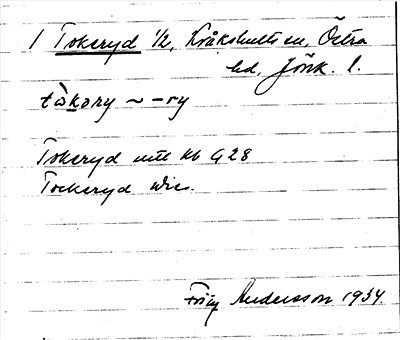 1 Tokeryd 1/2, Kråkshults sn, Östra
hd, Jönk. l.
tò̀kəry ~ -ry
Tokeryd utt kb G28
Tockeryd Wies.
Andersson 1934.